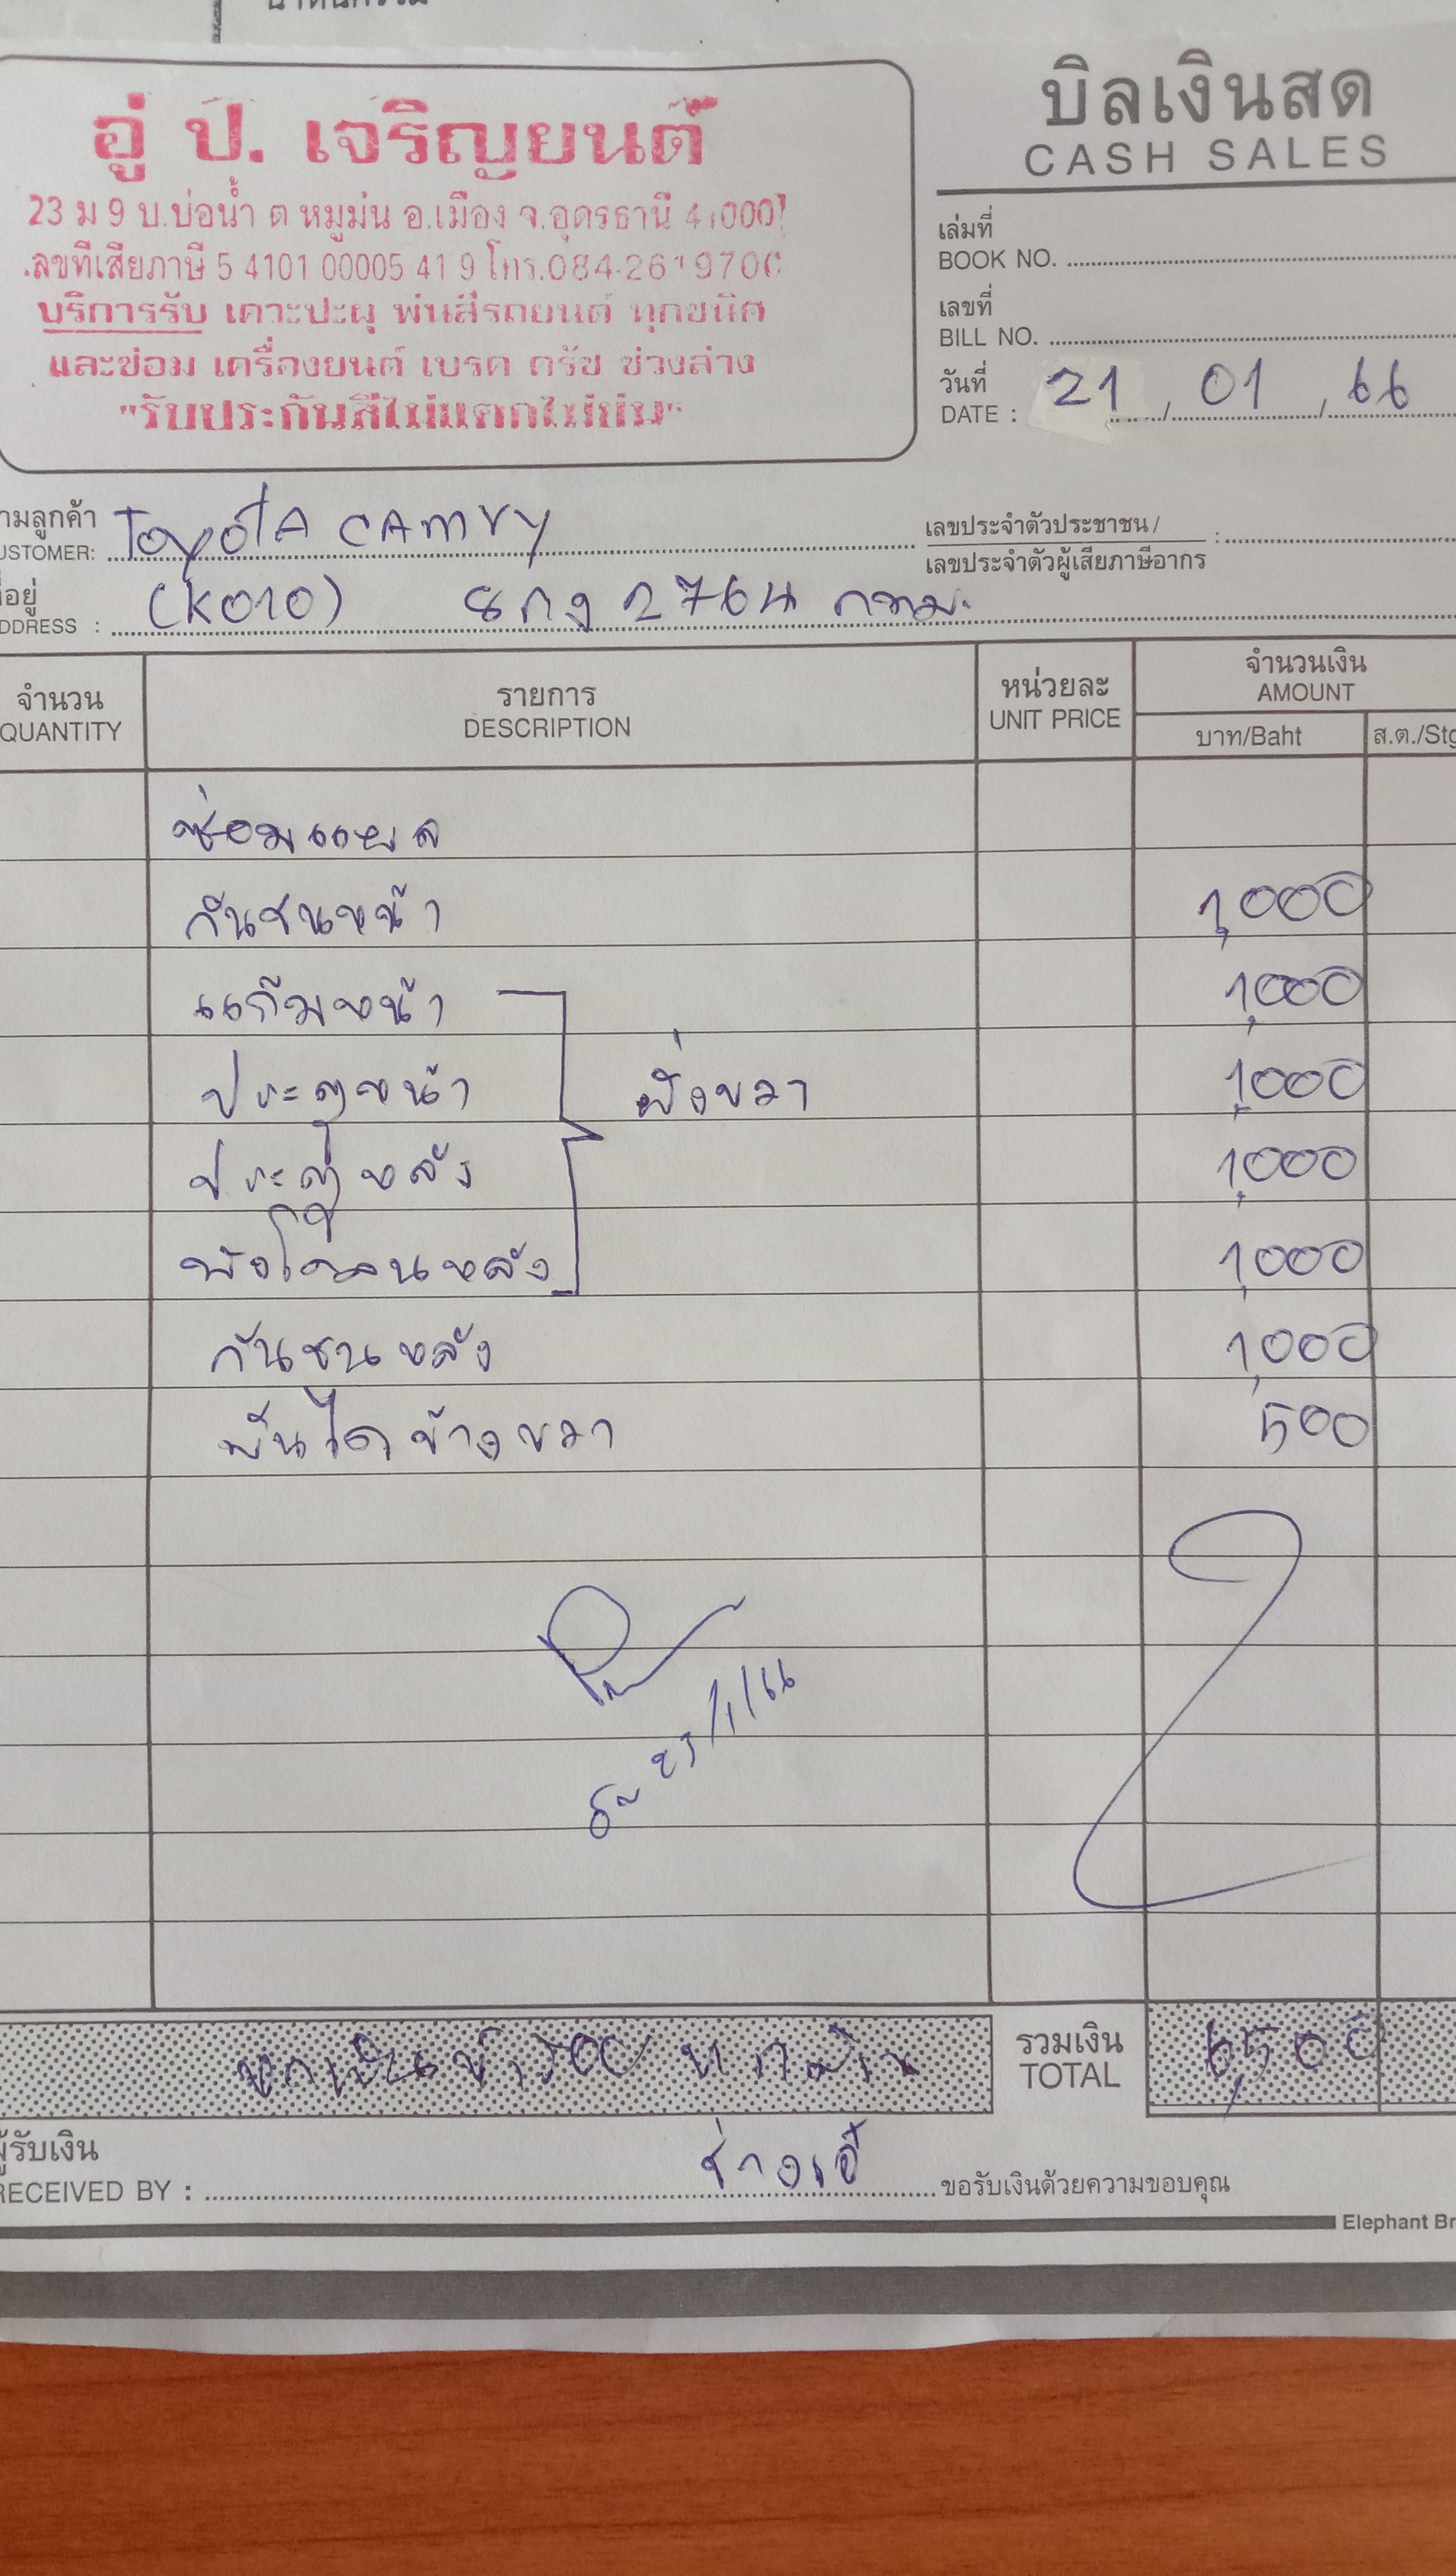 อู่ ป. เจริญยนต์
23 ม 9 บ.บ่อน้ำ ต หมูม่น อ.เมือง จ.อุดรธานี 41000
ลขที่เสียภาษี 5 4101 00005 41 9 โทร.084-261970
บริการรับ เคาะปะผุ พ่นสีรถยนต์ ทุกชนิด
และซ่อม เครื่องยนต์ เบรค ครัช ช่วงล่าง
"รับประกันสีไม่แตกไม่ย่น"
บิลเงินสด
CASH SALES
เล่มที่
BOOK NO.
เลขที่
BILL NO.
วันที่
DATE : 21 / 01 / 66
ามลูกค้า
USTOMER: ToyotA CAmry
เลขประจำตัวประชาชน /
เลขประจำตัวผู้เสียภาษีอากร :
ี่อยู่
DDRESS : (K010) 8กง 2764 กทม.
จำนวน
QUANTITY
รายการ
DESCRIPTION
หน่วยละ
UNIT PRICE
จำนวนเงิน
AMOUNT
บาท/Baht
ส.ต./Stg
ซ่อมแผล
กันชนหน้า 1,000
แก้มหน้า 1,000
ประตูหน้า 1,000
ฝั่งขวา
ประตูหลัง 1,000
บังโคลนหลัง 1,000
กันชนหลัง 1,000
บันไดข้างขวา 500
23/1/66
รวมเงิน
TOTAL 6,500
ผู้รับเงิน
RECEIVED BY : ช่างเอ๋
ขอรับเงินด้วยความขอบคุณ
Elephant Br